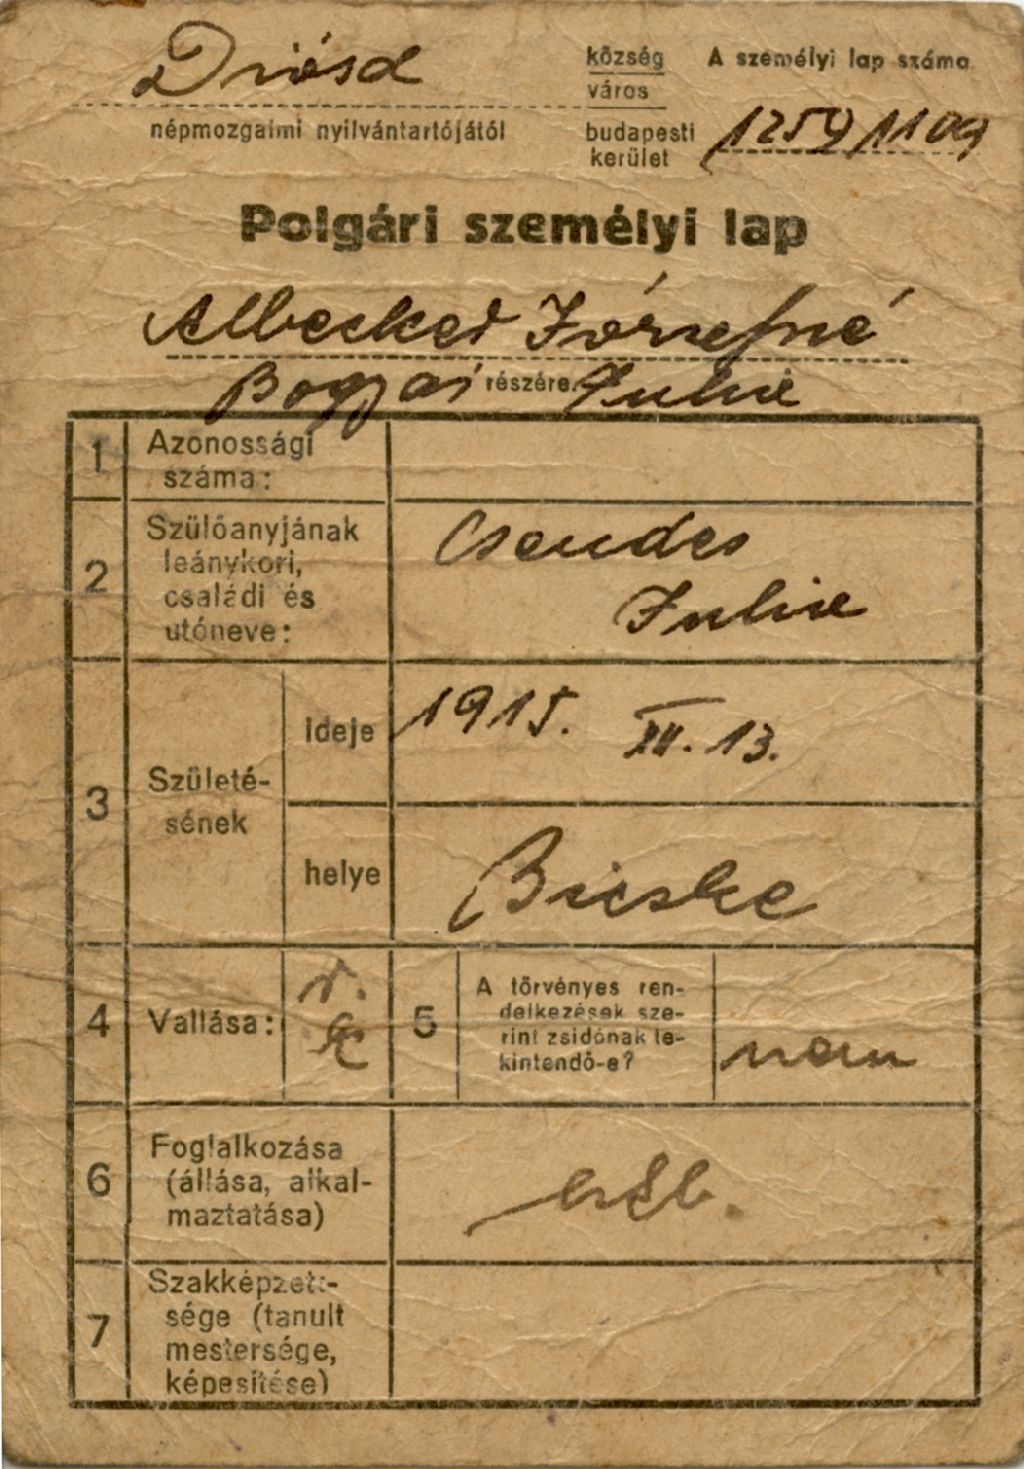 Diósd
község
A személyi lap száma
város
népmozgalmi nyilvántartójától
budapesti
kerület
Polgári személyi lap
Albecker Józsefné
Bogyai részére Julia
1 Azonossági
száma:
2 Szülőanyjának
leánykori,
családi és
utóneve:
Csendes
Julia
3 Születé-
sének
ideje
1915. XII. 13.
helye
Bicske
4 Vallása:
r.
k.
5 A törvényes ren-
delkezések sze-
rint zsidónak te-
kintendő-e?
nem
6 Foglalkozása
(állása, alkal-
maztatása)
7 Szakképzett-
sége (tanult
mestersége,
képesítése)